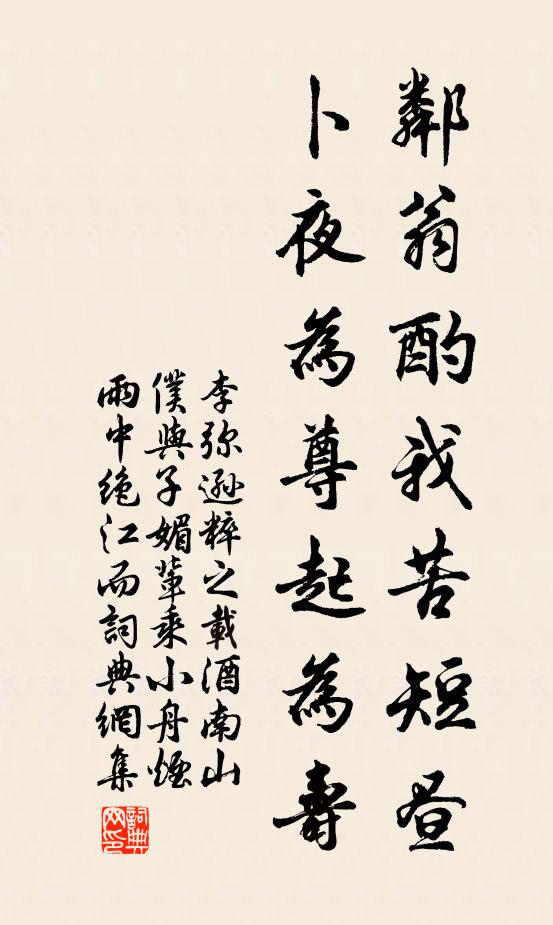 鄰翁酌我苦短昼
卜夜為尊起為壽
李弥遜粹之載酒南山
僕與子媚輩乘小舟煙
雨中絶江而詞典網集
詞典
网印